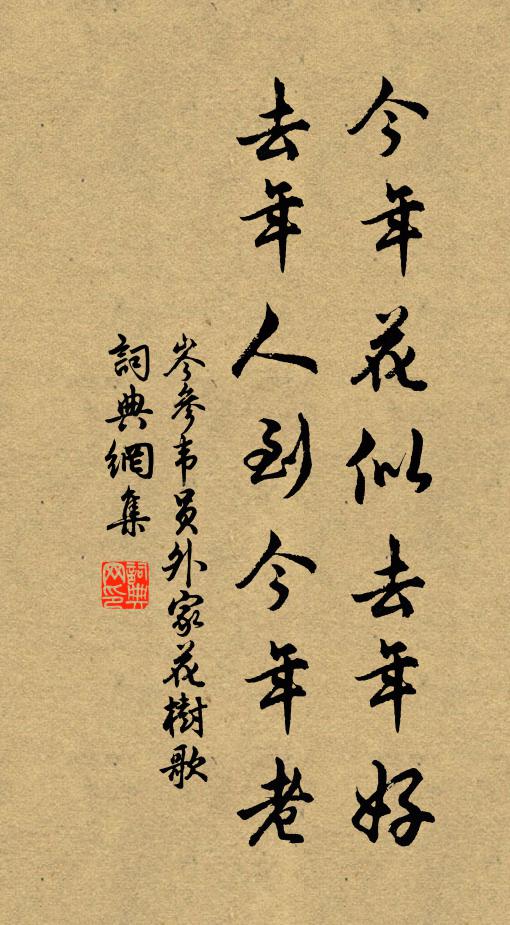 今年花似去年好
去年人到今年老
岑參韦員外家花樹歌
詞典網集
詞典網印